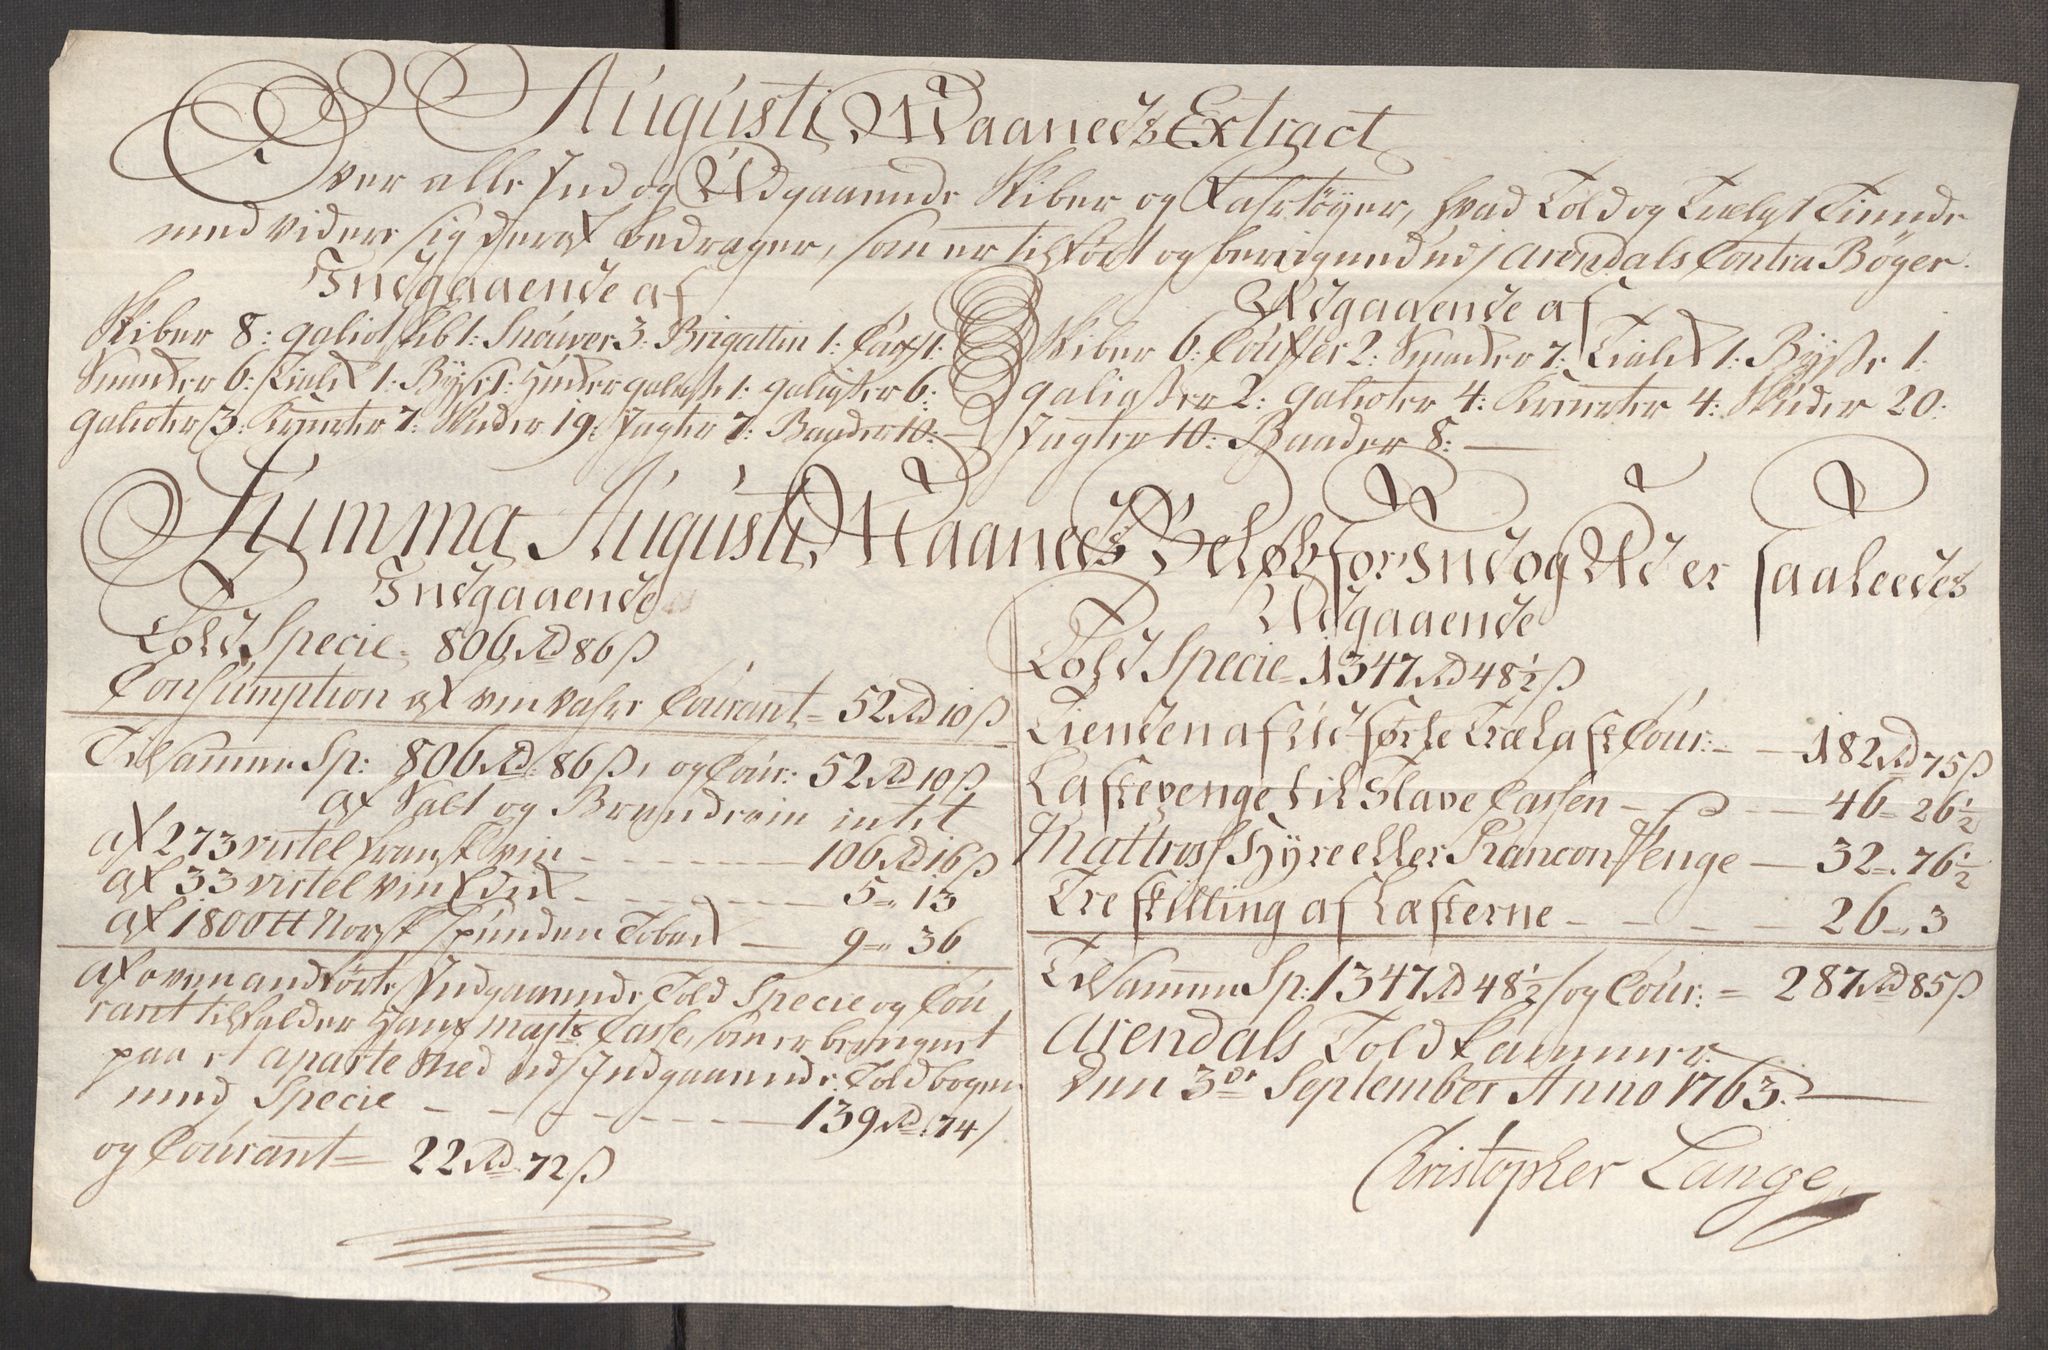 Augusti Maaneds Extract
Over alle Ind og Udgaaende Skiber og Fahrtøyer, hvad Told og Trælast Tiende
med videre sig deraf bedrager, som er tilført og beregnet udj Arendals Contra Bøger.
Indgaaende af
Skiber 8: galiot skib 1: Snauver 3: Brigattin 1: 1:
Smacker 6: Tialck 1: Bysse 1: Huckergaliasse 1: galiaser 6:
galioter 3: Kreyerter 7: Skuder 19: Jagter 7: Baader 10:
Udgaaende af
Skiber 6: Couffer 2: Smacker 7: Tialck 1: Bysse 1:
galiaser 2: galioter 4: Kreyerter 4: Skuder 20:
Jagter 10: Baader 8:
Summa Augusti Maaneds Beløb for Ind og Ud er saaleedes
Indgaaende
Told Specie = 806 Rd 86 ß
Consumption af vin vahre Courant = 52 Rd 10 ß
Tilsammen Sp: 806 Rd: 86 ß, og Cour: 52 Rd 10 ß
af Salt og Brendevin intet
af 273 virtel fransk vin - - - - - 106 Rd 16 ß
af 33 virtel vin Edik - - - - - - 5 = 13
af 1800 tt Norsk spunden Toback - 9 = 36
af ovenanførte Indgaaende Told Specie og Cou
rant tilfalder Hans Mayts Casse, som er beregnet
paa et aparte Sted udj Indgaaende Told bogen
med Specie - - - - - - - - 139 Rd 74 /
og Courant = 22 Rd 72 ß
Udgaaende
Told Specie = 1347 Rd 48½ ß
Tienden af Udførte Trælast Cour: - 182 Rd 75 ß
Lastepenge til Slave Cassen - - - 46 = 26½
Mattros Hyre eller Rancon Penge - 32 = 76½
Tre skilling af Læsterne - - - - 26 = 3
Tilsammen Sp: 1347 Rd 48½ / og Cour: = 287 Rd 85 ß
Arendals Told Kammer
den 3de September Anno 1763.
Christopher Lange